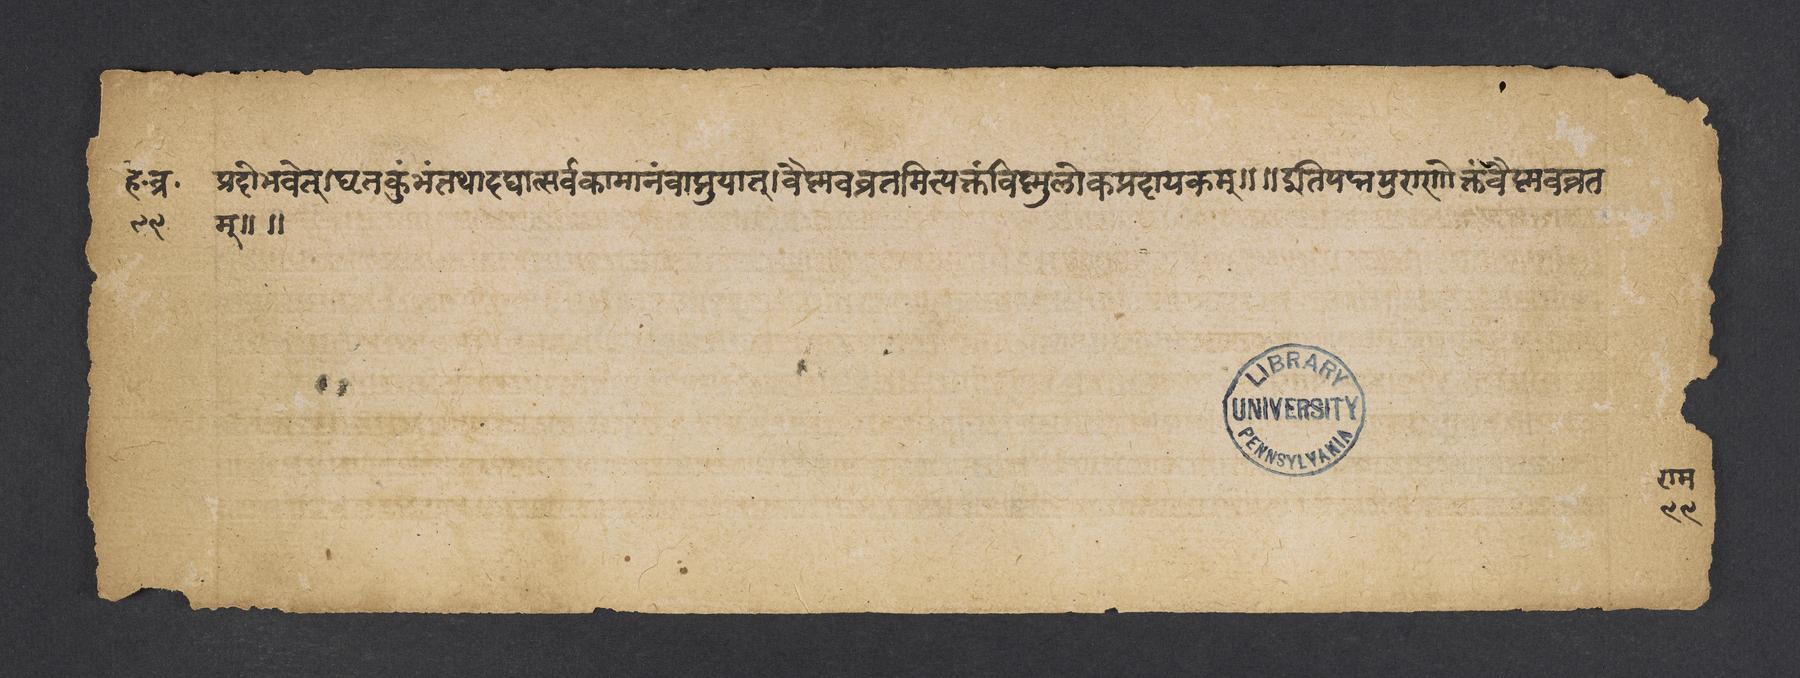 हे॰व्र॰ प्रदोभवेत्।घृतकुंभंतथादद्यात्सर्वकामानंवाप्नुयात्।वैष्णवव्रतमित्यक्तंविष्णुलोकप्रदायकम्॥॥इतिपद्मपुराणोक्तंवैष्णवव्रत
९९ म्॥॥
LIBRARY
UNIVERSITY
PENNSYLVANIA
राम
९९